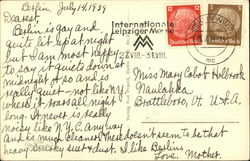 Berlin July 14, 1939
Dearest,
Berlin is gay and
quite lit up at night
but I am most happy
to say it quiets down at
midnight or so and is
really quiet - not like N.Y.
where it roars all night
long. It never is really
noisy like N.Y.C. anyway
and is much cleaner. There doesn't seem to be that
heavy smoky soot & dust. I like Berlin
Love, Mother.
Internationale
Leipziger Messe
27.VIII.-31.VIII.
Miss Mary Cabot Holbrook
Naulahka
Brattleboro, Vt. U.S.A.